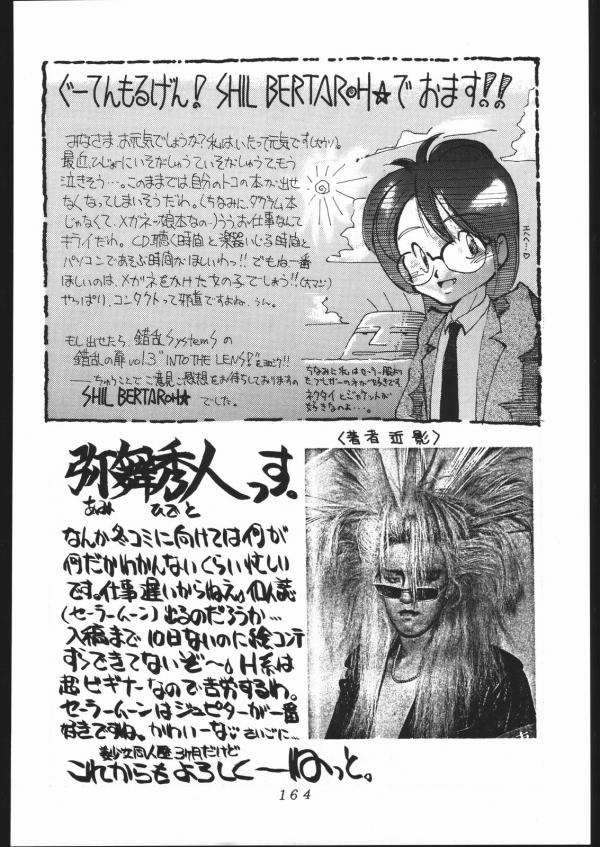 ぐーてんもるげん! SHIL BERTAROH☆でおます!!
みなさま お元気でしょうか?私はいたって元気です(大ウソ)。
最近、ひじょーにいそがしゅうていそがしゅうてもう
泣きそう…。このままでは自分のトコの本が出せ
なくなってしまいそうだわ。(ちなみに、タカラム本
じゃなくて、メガネっ娘本なの…)うう、お仕事なんて
キライだわ。CD聴く時間と楽器いじる時間と
パソコンであそぶ時間がほしいわっ!!でもね一番
ほしいのは、メガネをかけた女の子でしょう!!(大マジ)
やっぱり、コンタクトって邪道ですよね、うん。
もし出せたら、錯乱SystemSの
錯乱の扉 vol.3 "INTO THE LENS"を
——ちゅうことでご意見ご感想をお待ちしておりますの
SHIL BERTAROH☆でした。
エヘヘ…♡
ちなみに私はセーラー服より
もブレザーの方が好きです
ネクタイとジャケットが
好きなのよ…。
弥舞秀人っす。
あみ ひでと
なんか冬コミに向けては何が
何だかわかんないくらい忙しい
です。仕事遅いからねえ。個人誌
(セーラームーン)出るのだろうか…
入稿まで10日ないのに絵コンテ
すらできてないぞ〜。H系は
超ビギナーなので苦労するわ。
セーラームーンはジュピターが一番
好きですね。かわいーなぁ さいごに…
美少女同人歴3ヶ月だけど
これからもよろしく〜ねっと。
〈著者近影〉
164